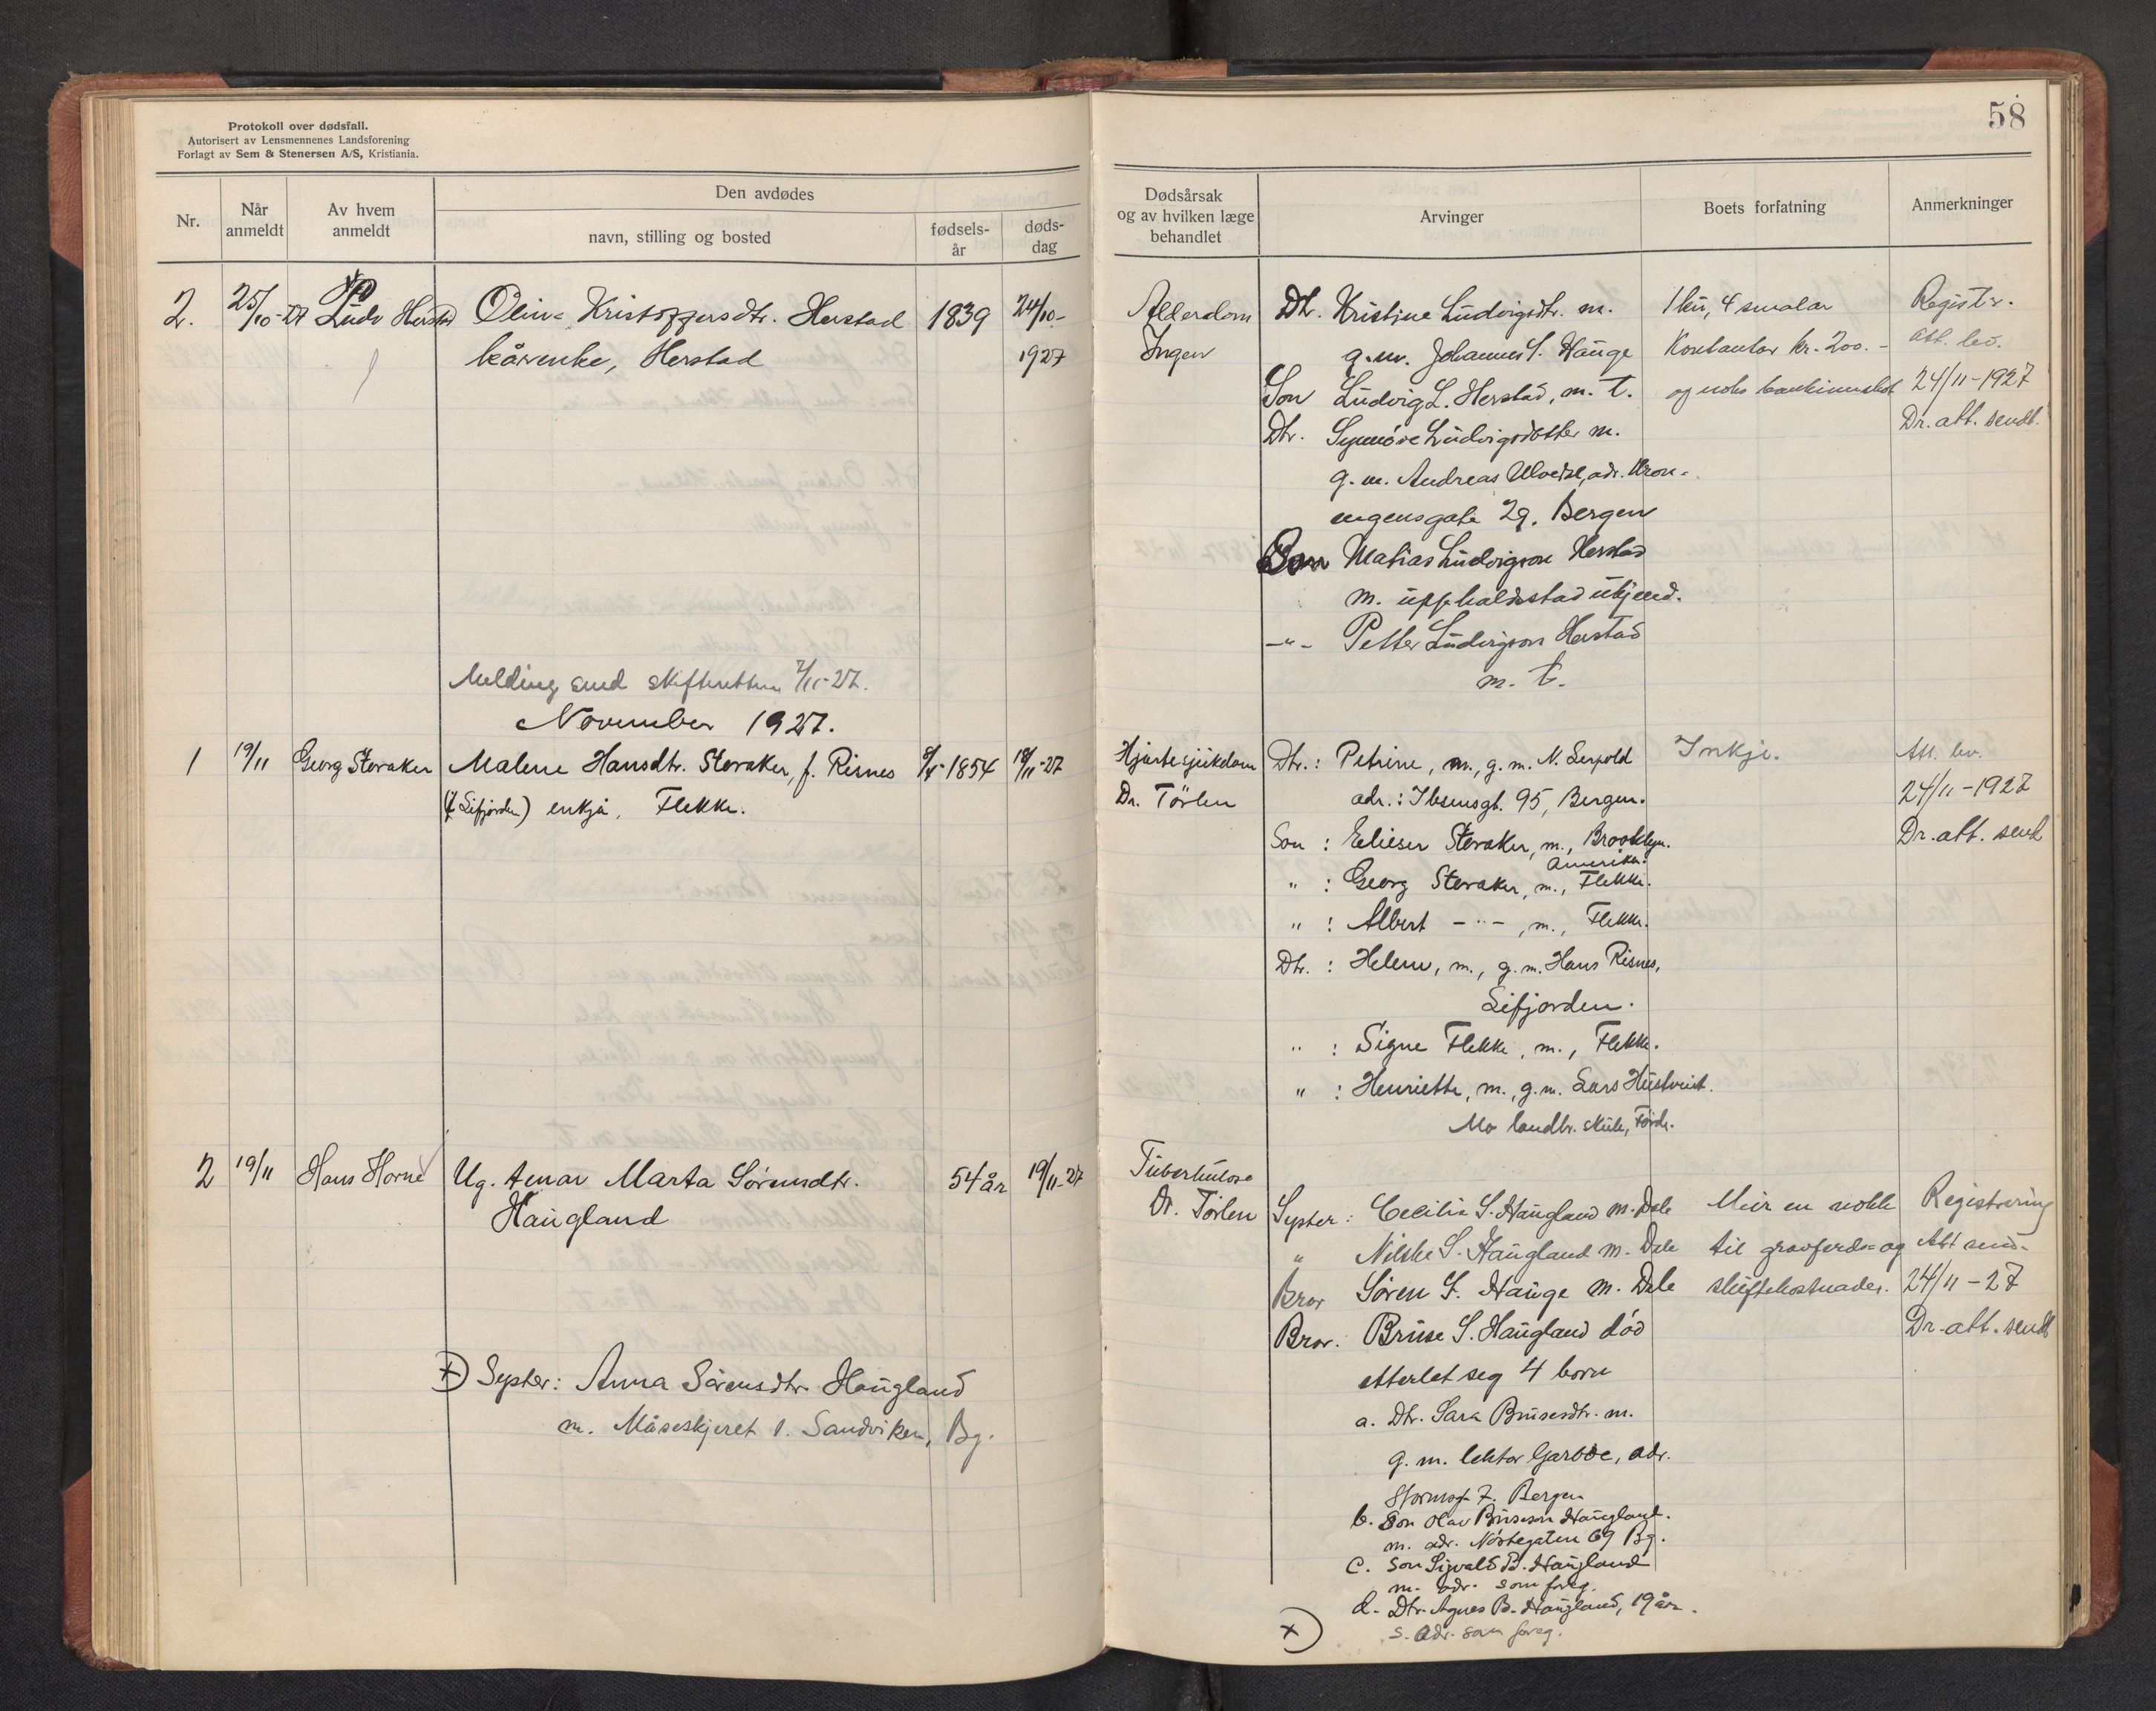 Protokoll over dødsfall.
Autorisert av Lensmennenes Landsforening
Forlagt av Sem & Stenersen A/S, Kristiania.
Nr.
Når anmeldt
Av hvem anmeldt
Den avdødes
navn, stilling og bosted
fødsels-år
døds-dag
2. 25/10-27 Ludv Herstad Oline Kristoffersdtr. Herstad 1839 24/10-
kårenke, Herstad 1927
Melding send skifteretten 7/11-27.
November 1927.
1 19/11 Georg Storaker Malene Hansdtr. Storaker, f. Risnes 1854 18/11-27
(f. Lifjorden) enkja, Flekke.
2 19/11 Hans Horne Ug. tenar Marta Sørensdtr. 54 år 19/11-27
Haugland
x) Syster: Anna Sørensdtr. Haugland
m. Måseskjeret 1. Sandviken, Bg.
58
Dødsårsak
og av hvilken læge
behandlet
Arvinger
Boets forfatning
Anmerkninger
Alderdom Dtr. Kristine Ludvigsdtr. m. 1 ku, 4 smalar Registr.
Ingen g.m. Johannes S. Hauge Kontantar kr. 200.- att. lev.
Son Ludvig L. Herstad, m. t. og noko bankinnskot 24/11-1927
Dtr. Synnöve Ludvigsdotter m. Dr. att. sendt.
g. m. Andreas adr. Kron-
ingensgate 29. Bergen
Son Matias Ludvigson Herstad
m. uppheldstad ukjend.
-"- Petter Ludvigson Herstad
m. t.
Hjartesjukdom Dtr.: Petrine, m., g. m. N. Leopold Inkje. Att. lev.
Dr. Törlen adr.: Ibsensgt. 95, Bergen. 24/11-1927
Son : Elieser Storaker, m., Brooklyn. Dr. att. send
Amerika.
" : Georg Storaker, m., Flekke.
" : Albert -"-, m., Flekke.
Dtr. : Helene, m., g. m. Hans Risnes,
Lifjorden.
" : Signe Flekke, m., Flekke.
" : Henriette, m., g. m. Lars Hustveit.
Mo landbr. skule, Förde.
Tuberkulose
Dr. Törlen Syster : Cecilia S. Haugland m. Dale Meir en nokk Registrering
" Nilske S. Haugland m. Dale til gravferds- og Att send.
Bror Sören S. Hauge m. Dale skiftekostnader. 24/11-27
Bror. Bruse S. Haugland död Dr. att. sendt
etterlet seg 4 born
a. Dtr. Sara Brusesdtr. m.
g. m. lektor Garbde, adr.
Stormsgt 7. Bergen
b. Son Olav Bruseson Haugland.
m. adr. Nöstegaten 69 Bg.
c. Son Sigvald B. Haugland
m. adr. som foreg.
d. Dtr. Agnes B. Haugland, 19 år.
s. adr. som foreg.
x)